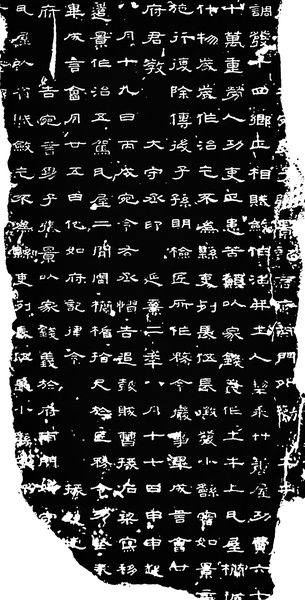 府南門外勸
調發十四鄉正相賦斂作治并土人犁耒艹蓎屋功費六七
十萬重勞人功吏正患苦願以家錢義作土牛上瓦屋欄楯
什物歲歲作治乞不為縣吏列長伍長徵發小繇審如景
施行復除傳後子孫明檢匠所作務令嚴事畢成言會廿
府君教 大守丞印 延熹二年八月十七日甲申起
八月十九日丙戌宛令右丞慴告追鼓賊曹掾石梁寫移
遣景作治五駕瓦屋二間周欄楯拾尺於匠務令功堅奉
畢成言會月廿五日他如府記律令 掾
告宛言男子張景以家錢義於府南門外
瓦屋以省賦斂乞不為縣吏列長伍長小繇